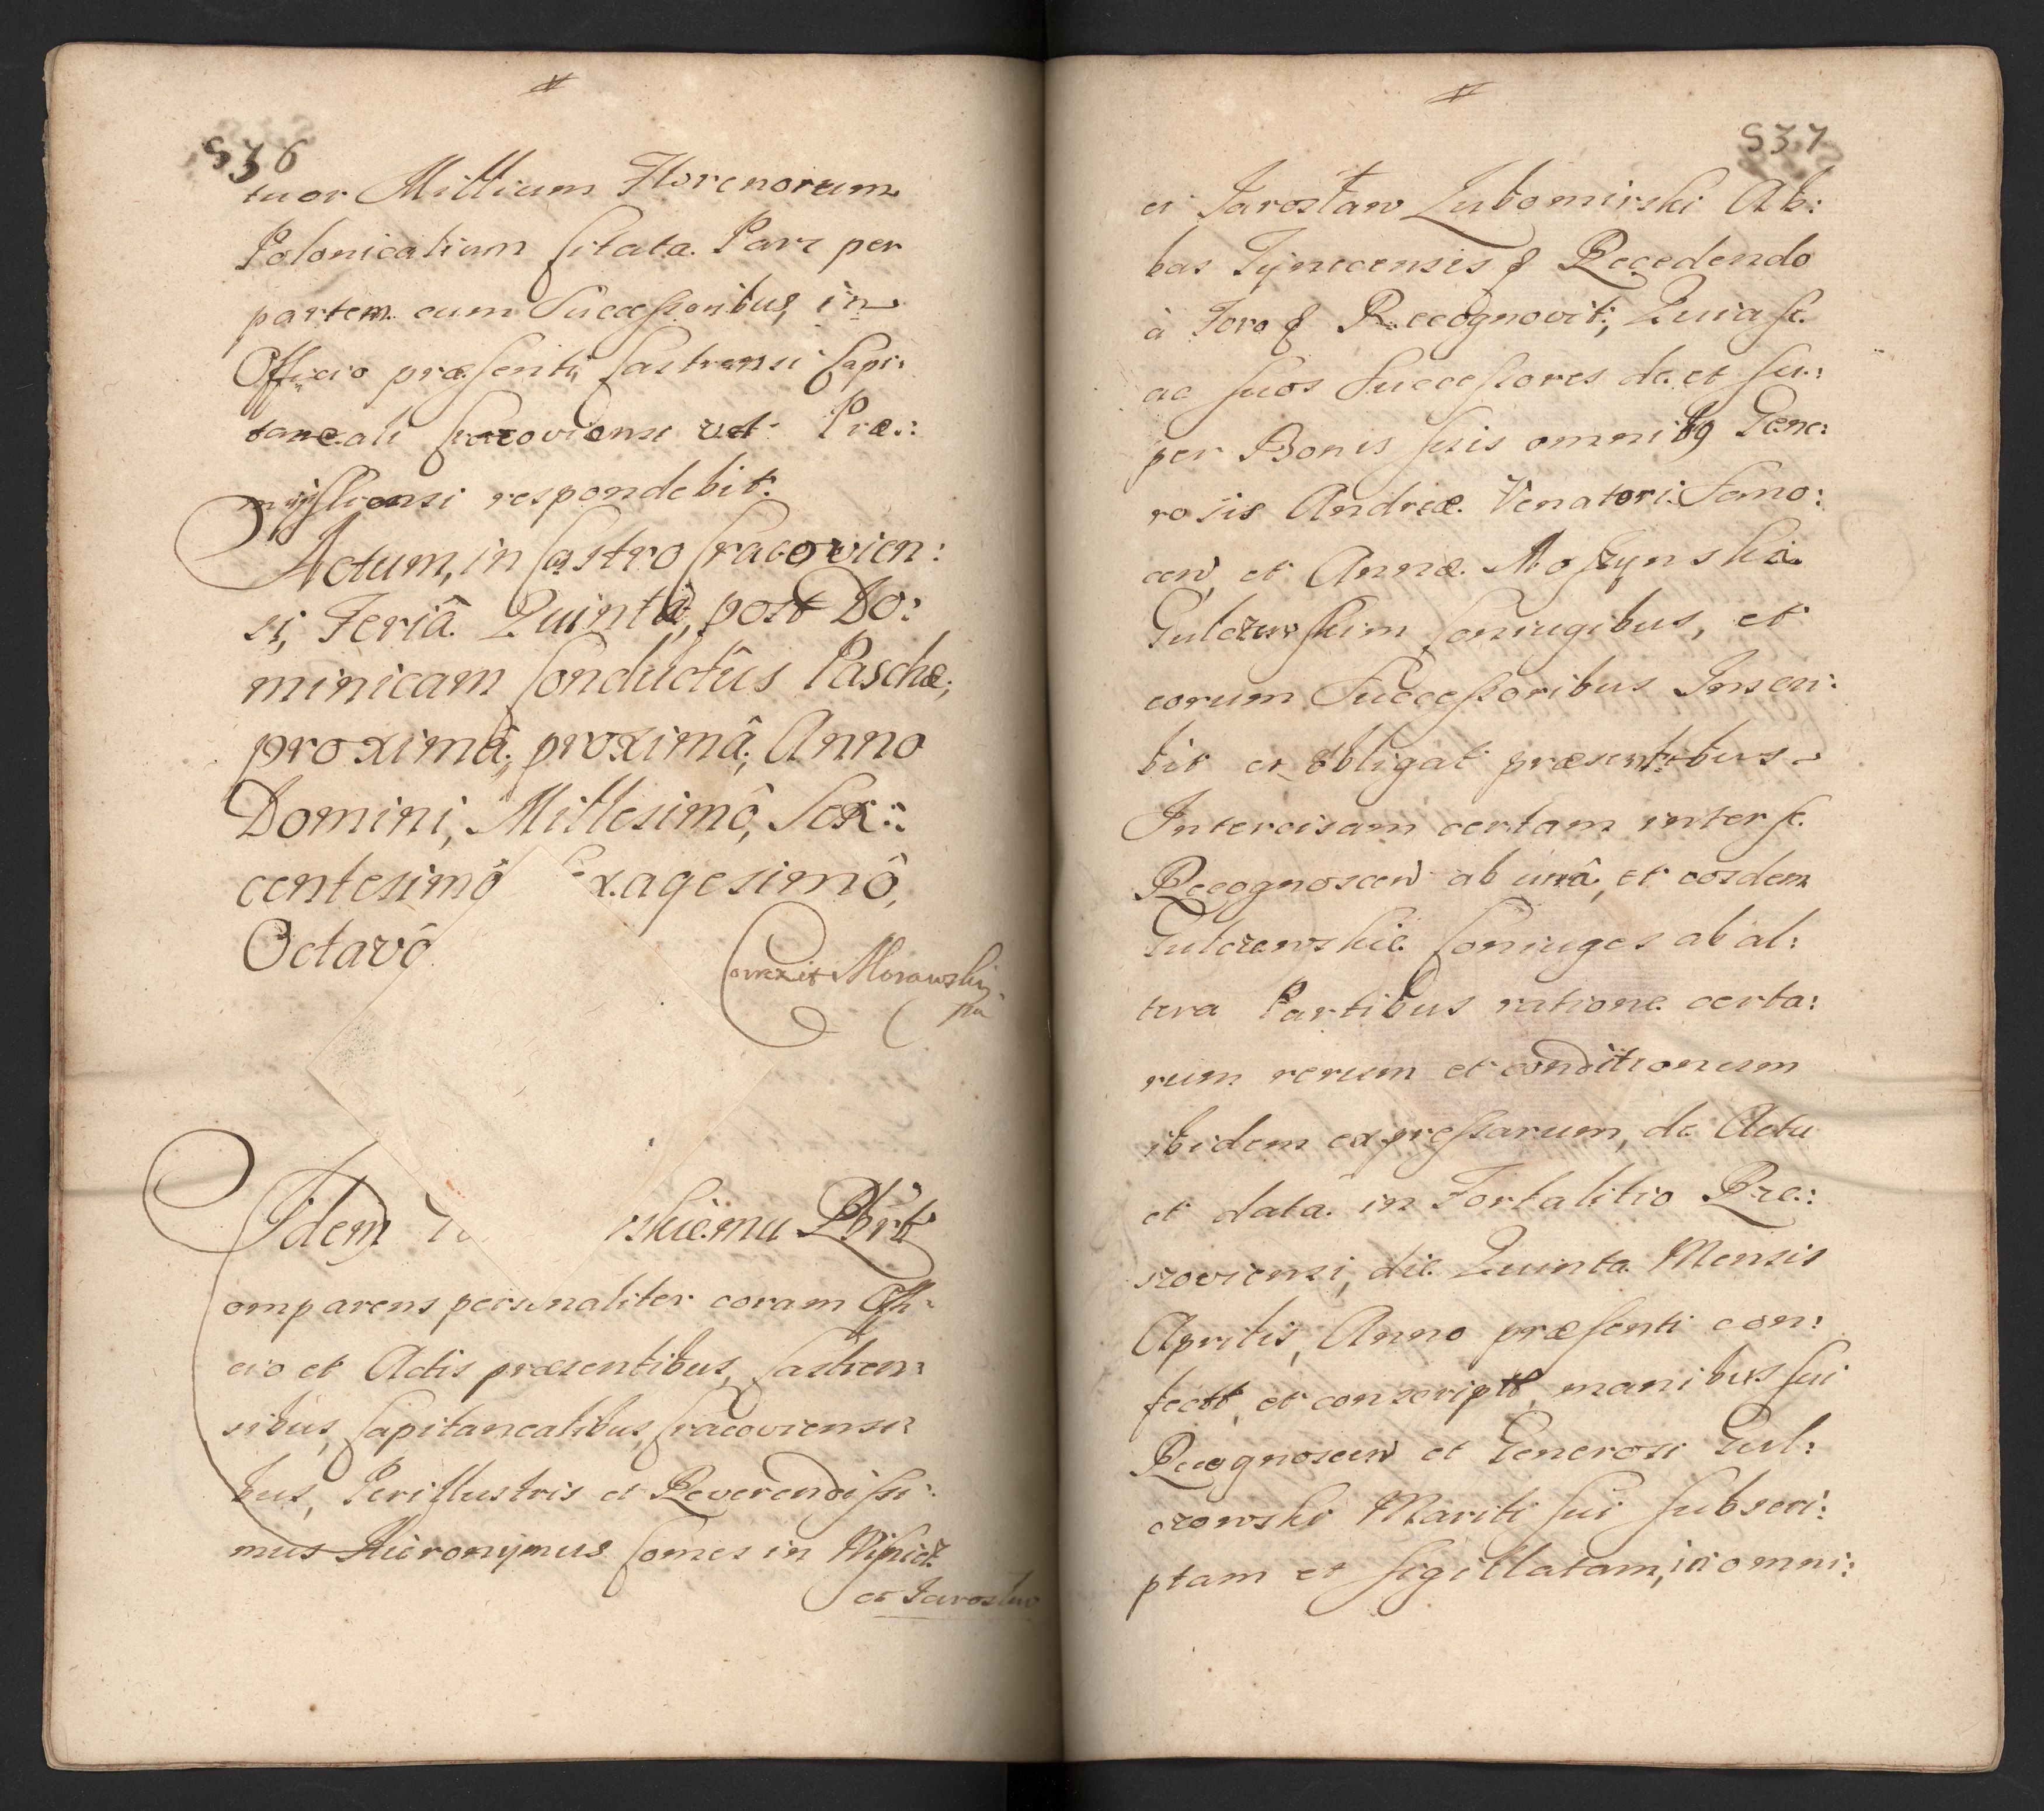 536
tuor Millium Florenorum
Polonicalium Citata. Pars per
partem cum Successoribus, in
Officio præsenti, Castrensi Capi:
taneali Cracoviensi vel Præ:
mysliensi respondebit.
Actum, in Castro Cracovien:
si, Feriâ Quintâ, post Do:
minicam Conductûs Paschæ,
proximâ, proximâ, Anno
Domini, Millesimô, Sex:
centesimô xagesimô,
Octavô
Correxit Morawski
Idem skiemu
omparens personaliter coram Offi:
cio et Actis præsentibus, Castren:
sibus, Capitanealibus, Cracoviensi:
bus, Perillustris et Reverendissi:
mus Hieronymus Comes in Wisnicz
et Jaroslaw
537
et Jarosław Lubomirski Ab:
bas Tynecensis & Recedendo
à Foro & Recognovit, Quia se
ac suos Successores de et su:
per Bonis suis omnibq Gene:
rosis Andreæ Venatori
cen, et Annæ Moszynska
Conjugibus, et
eorum Successoribus Inscri:
bit et obligat præsentibus
Intercisam certam inter se
Recognoscen ab unâ, et eosdem
Gulczewskie Coniuges ab al:
tera Partibus ratione certa:
rum rerum et conditionum
ibidem expressarum, de Actu
et data in Fortalitio Rze:
szoviensi, die Quinta Mensis
Aprilis, Anno præsenti con:
fectt, et conscriptt, manibus sui
Recognoscen et Generosi Gul:
czewski Mariti sui subscri:
ptam et sigillatam, in omni: